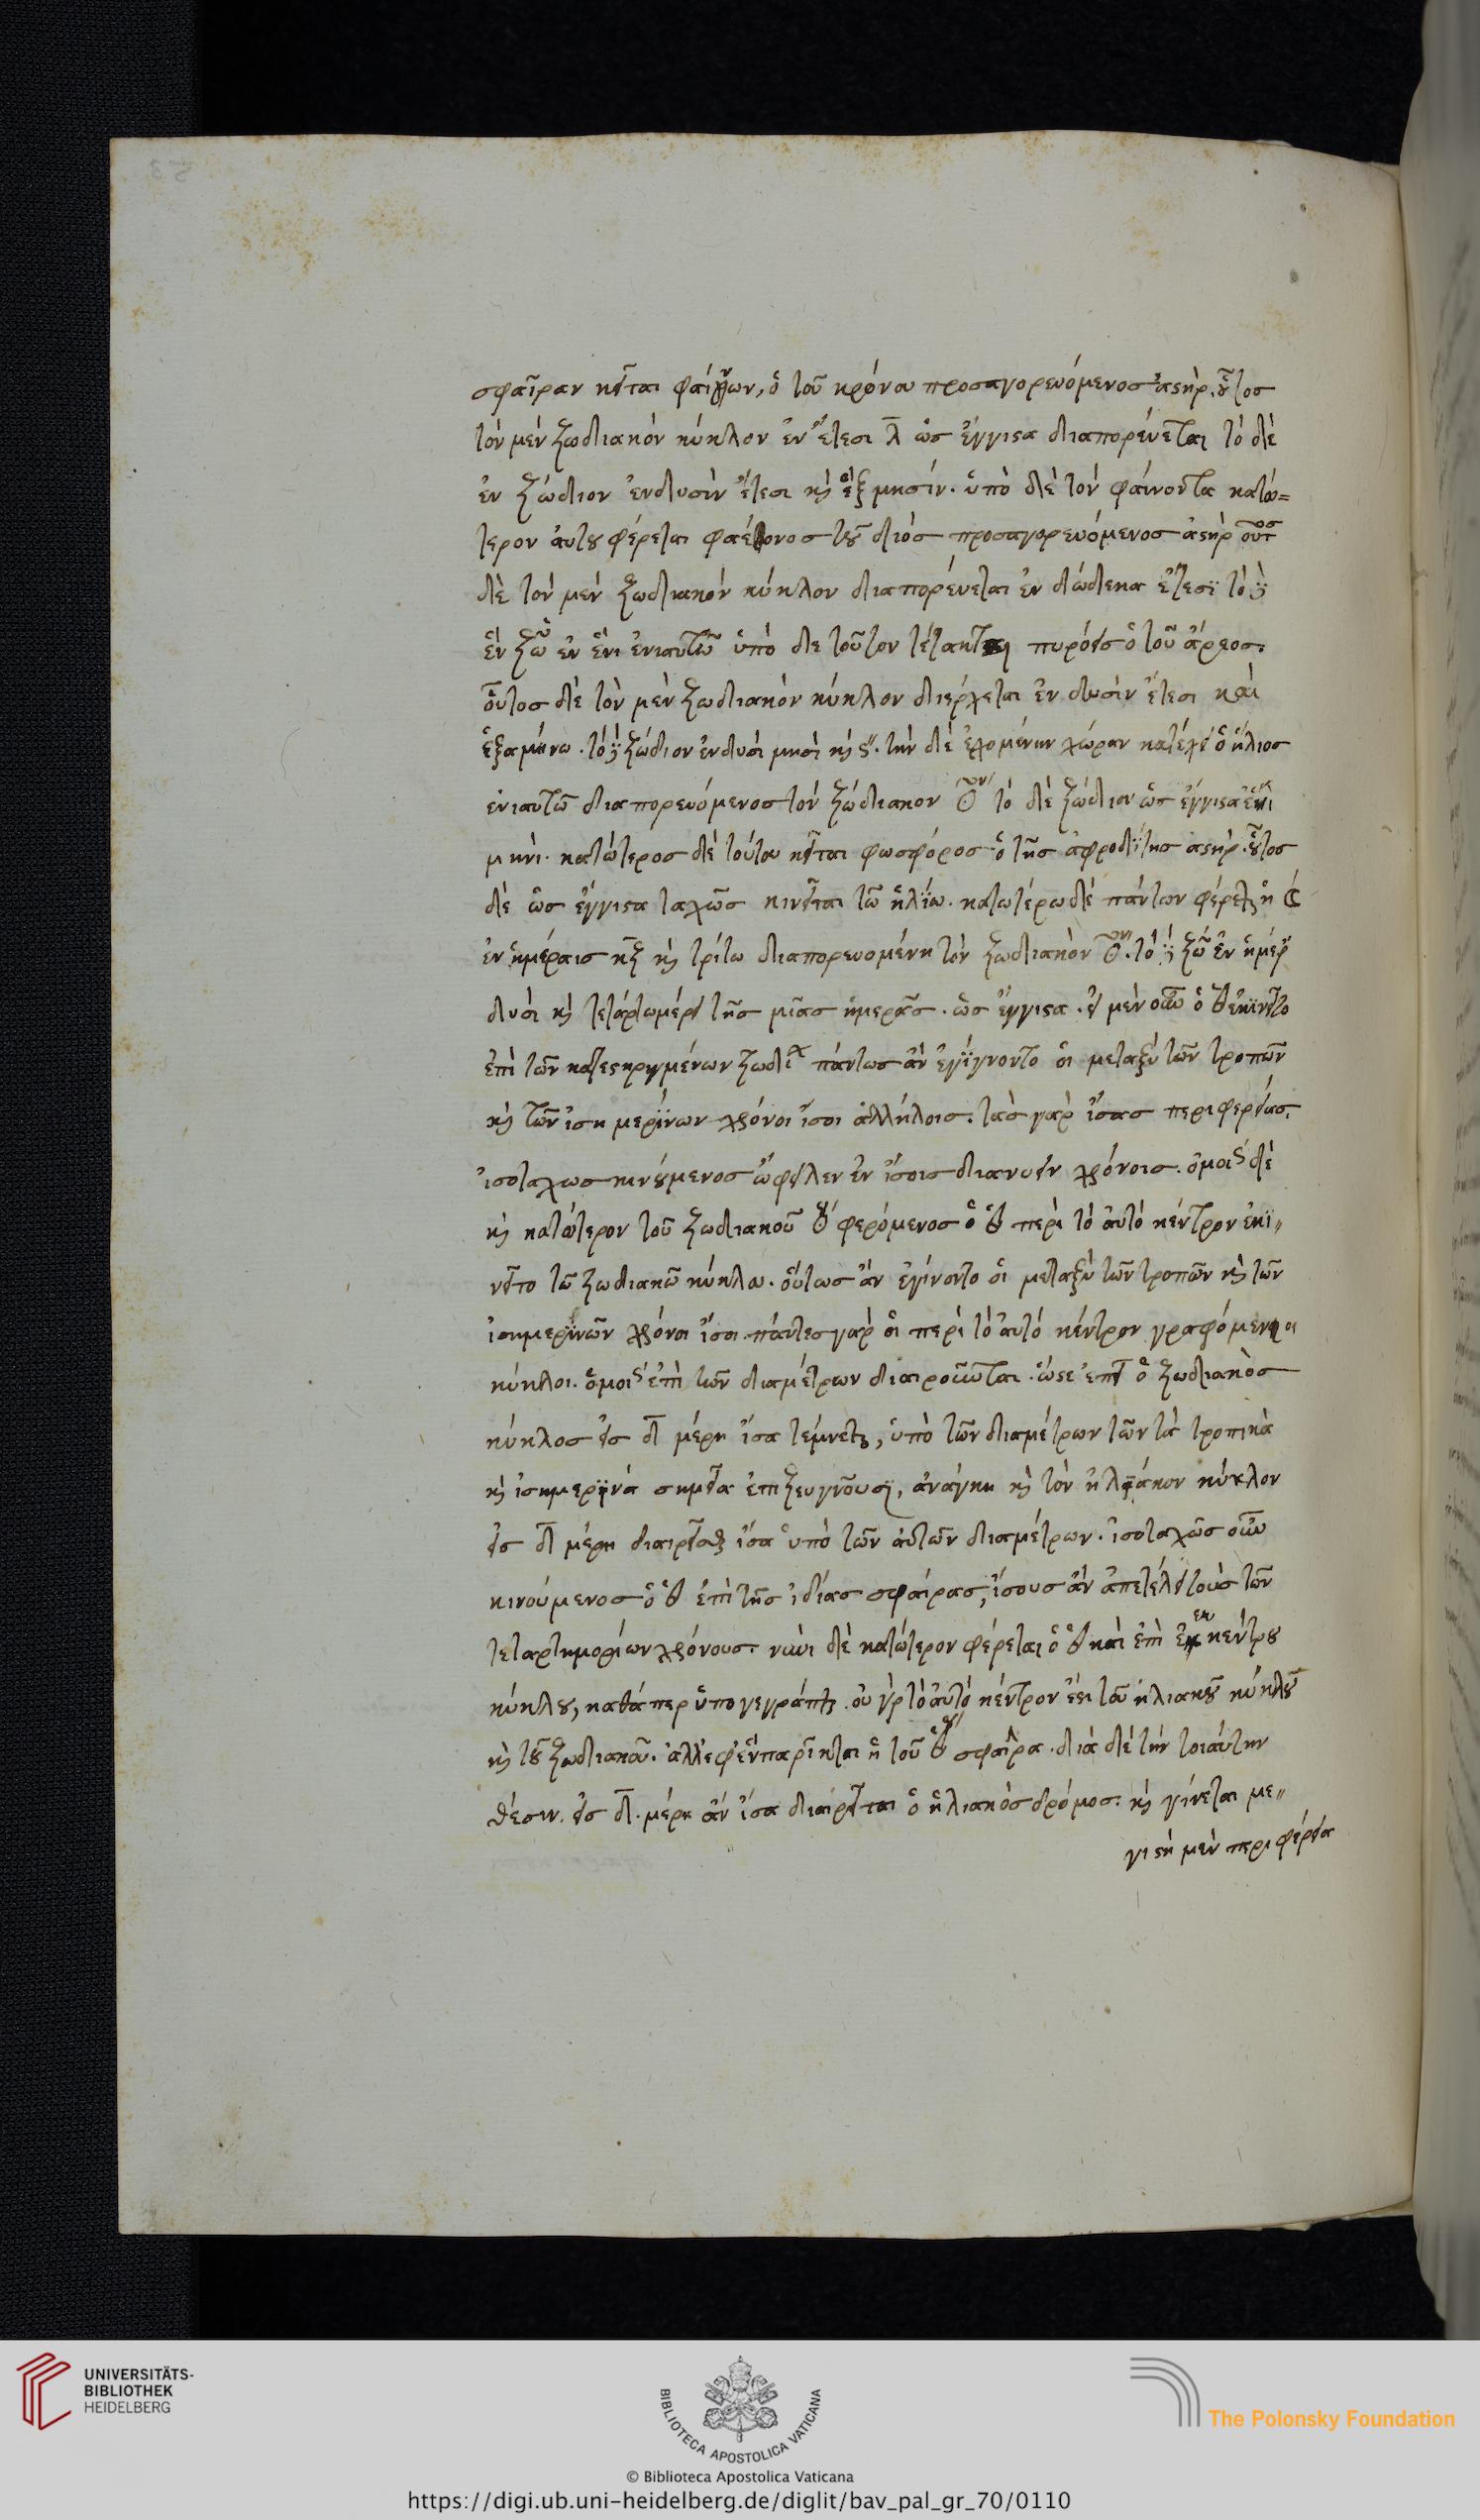 σφαῖραν κεῖται φαίνων, ὁ τοῦ κρόνου προσαγορευόμενος ἀστήρ. οὗτος
τὸν μὲν ζωδιακὸν κύκλον ἐν ἔτεσι λ ὡς ἔγγιστα διαπορεύεται τὸ δὲ
ἐν ζώδιον ἐν δυσὶν ἔτεσι κὶ ἓξ μησίν. ὑπὸ δὲ τὸν φαίνοντα κατώ=
τερον αὐτοῦ φέρεται φαέθονος τοῦ διὸς προσαγορευόμενος ἀστὴρ οὗτος
δὲ τὸν μὲν ζωδιακὸν κύκλον διαπορεύεται ἐν δώδεκα ἔτεσϊ τὸ δὲ
ἓν ζώ ἐν ἑνὶ ἐνιαυτῶ ὑπὸ δὲ τοῦτον τέτακται πυρόεις ὁ τοῦ ἄρεος.
οὗτος δὲ τὸν μὲν ζωδιακὸν κύκλον διέρχεται ἐν δυσὶν ἔτεσι καὶ
ἑξαμήνω. τὸ δὲ ζώδιον ἐν δυσὶ μησὶ κὶ ς''. τὴν δὲ ἐχομένην χώραν κατέχει ὁ ἥλιος
ἐνιαυτῶ διαπορευόμενος τὸν ζώδιακον τὸ δὲ ζώδιον ὡς ἔγγιστα ἑνὶ
μηνί. κατώτερος δὲ τούτου κεῖται φωσφόρος ὁ τῆς ἀφροδΐτης ἀστήρ. οὗτος
δὲ ὡς ἔγγιστα ταχῶς κινεῖται τῶ ἡλΐω. κατωτέρω δὲ πάντων φέρεται ἡ ☾
ἐν ἡμέραις κζ κὶ τρίτω διαπορευομένη τὸν ζωδιακὸν. τὸ δὲ ζώ ἐν ἡμέρ
δυσὶ κὶ τετάρτωμέρει τῆς μῖας ἡμερᾶς. ὡς ἔγγιστα. εἰ μὲν οὖν ὁ ἥλιος ἐκϊνεῖτο
ἐπὶ τῶν κατεστηργμένων ζωδίων πάντως ἂν ἐγΐγνοντο οἱ μεταξὺ τῶν τροπῶν
κὶ τῶν ἰσημερϊνων χρόνοι ἴσοι ἀλλήλοις. τὰς γὰρ ἴσας περιφερείας.
ἰσοταχως κινούμενος ὤφειλεν ἐν ἴσοις διανυειν χρόνοις. ὁμοίως δὲ
κὶ κατώτερον τοῦ ζωδιακοῦ φερόμενος ὁ ἥλιος περὶ τὸ αὐτὸ κέντρον ἐκϊ"
νεῖτο τῶ ζωδιακῶ κύκλω. οὕτως ἂν ἐγίνοντο οἱ μεταξὺ τῶν τροπῶν κὶ τῶν
ἰσημερϊνῶν χρόνοι ἴσοι. πάντες γὰρ οἱ περὶ τὸ αὐτὸ κέντρον γραφόμενοι
κύκλοι. ὁμοίως ἐπὶ τῶν διαμέτρων διαιροῦνται. ὥστε ἐπεὶ ὁ ζωδιακὸς
κύκλος εἰς δ μέρη ἴσα τέμνεται, ὑπὸ τῶν διαμέτρων τῶν τὰ τροπικὰ
κὶ ἰσημερϊνά σημεῖα ἐπιζευγνῦουσϊ, ἀνάγκη κὶ τὸν ἡλϊάκον κύκλον
εἰς δ μέρη διαιρεῖσθαι ἴσα ὑπὸ τῶν αὐτῶν διαμέτρων. ἰσοταχῶς οὖν
κινούμενος ὁ ἥλιος ἐπὶ τῆς ἰδίας σφαίρας, ἴσους ἂν ἀπετέλει τοὺς τῶν
τεταρτημορίων χρόνους. νυνὶ δὲ κατώτερον φέρεται ὁ ἥλιος καὶ ἐπὶ ἐκκέντρου
κύκλου, καθάπερ ὑπογεγράπται οὐ γὰρ τὸ αὐτὸ κέντρον ἐστι τοῦ ἡλιακοῦ κύκλοῦ
κὶ τοῦ ζωδιακοῦ. ἀλλ' ἐφ' ἓν παρῆκται ἡ τοῦ ἡλίου σφαῖρα. διὰ δὲ τὴν τοιάυτην
θέσιν. εἰς δ. μέρη ἂν ἴσα διαιρεῖται ὁ ἡλιακὸς δρόμος. κὶ γίνεται με"
γιστὴ μὲν περιφέρεια
53
UNIVERSITÄTS-
BIBLIOTHEK
HEIDELBERG
BIBLIOTECA APOSTOLICA VATICANA
The Polonsky Foundation
© Biblioteca Apostolica Vaticana
https://digi.ub.uni-heidelberg.de/diglit/bav_pal_gr_70/0110